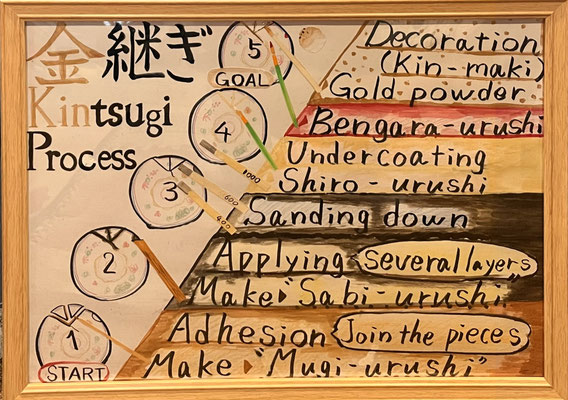 金継ぎ
Kintsugi
Process
5
GOAL
Decoration
(Kin-maki)
Gold powder
4
Bengara-urushi
Undercoating
Shiro-urushi
3
1000
600
400
Sanding down
2
Applying several layers
Make "Sabi-urushi"
1
START
Adhesion Join the pieces
Make "Mugi-urushi"